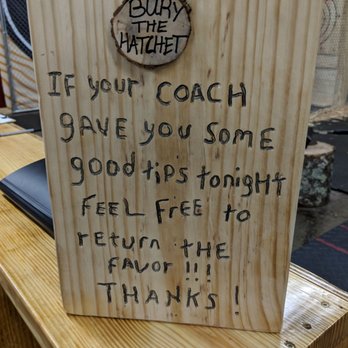 BURY
THE
HATCHET
IF your COACH
gAVE you SOME
good tips tonight
FEEL FREE to
return THE
FAVOR !!!
THANKS !